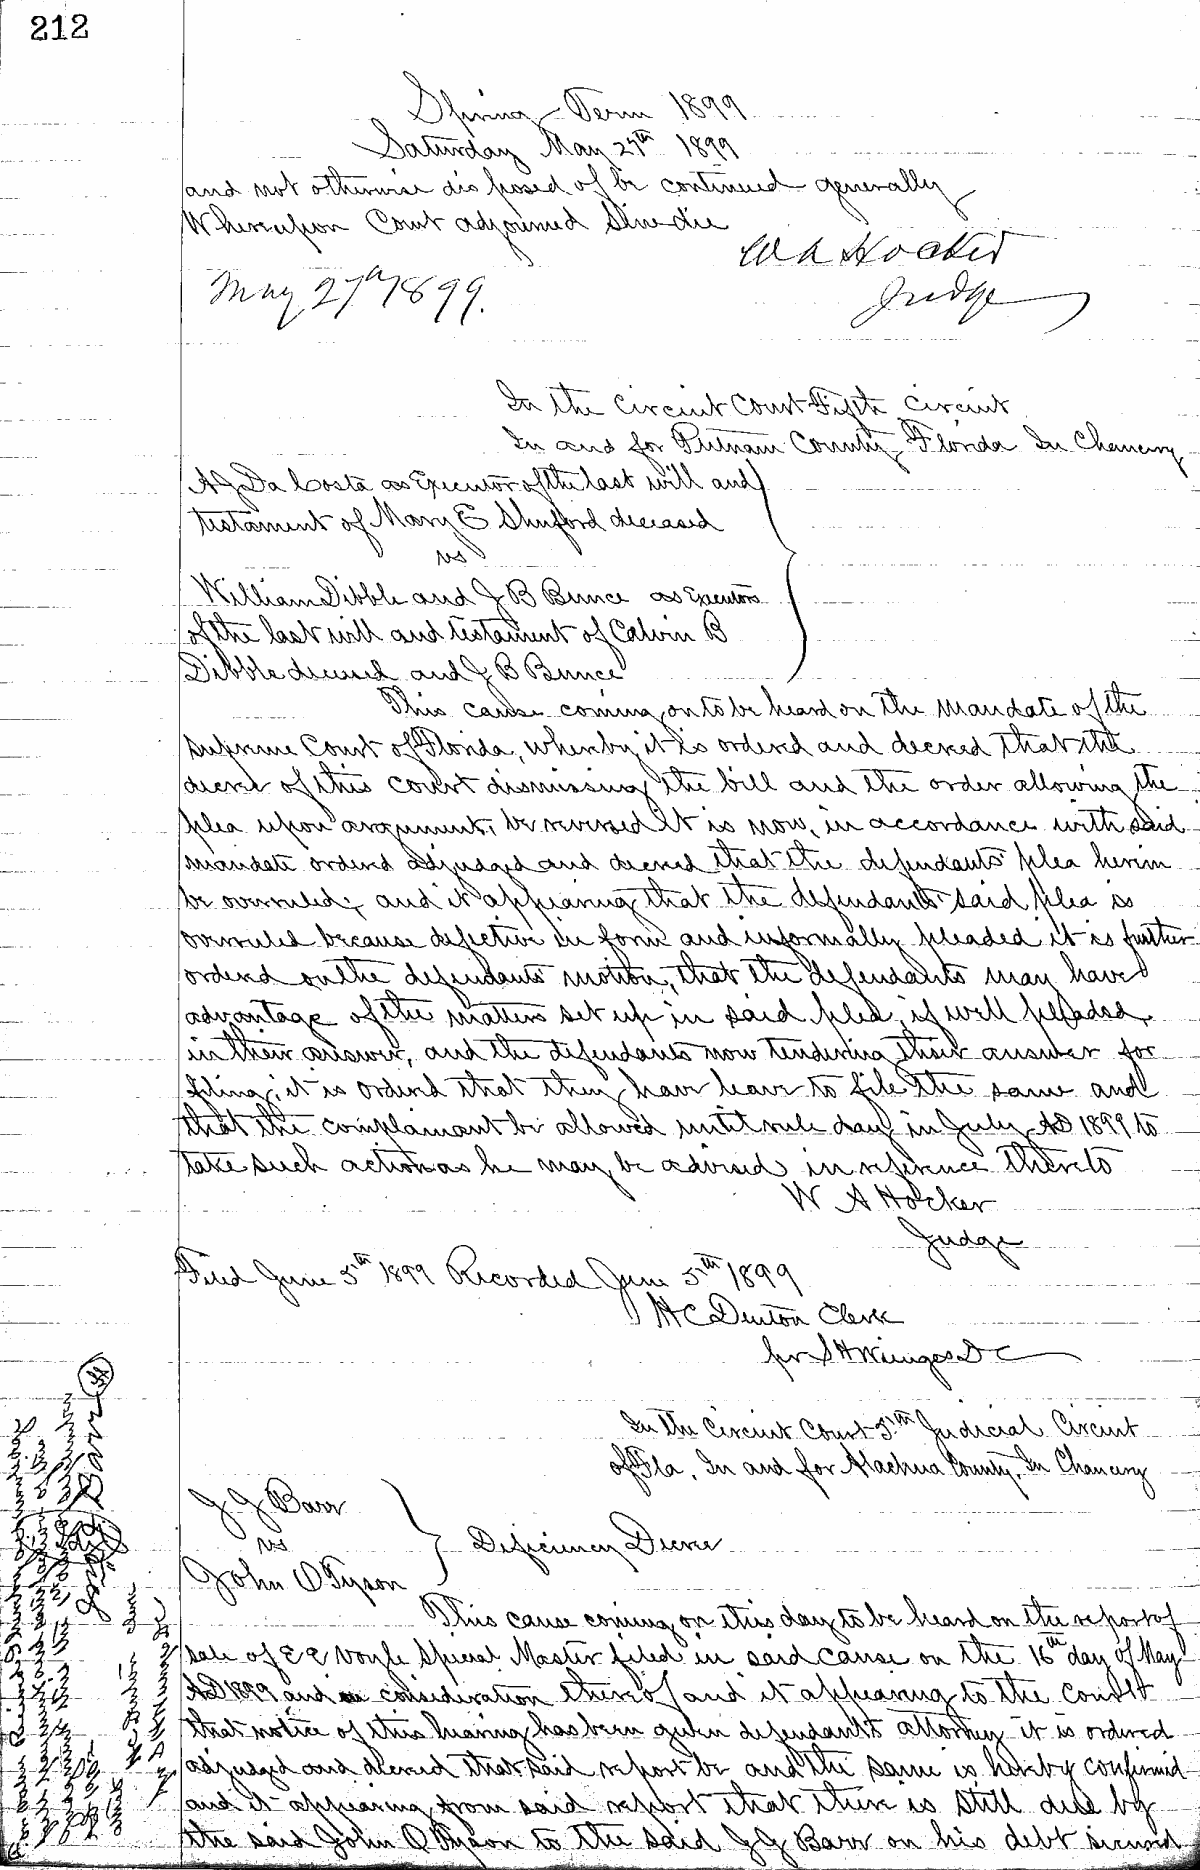 212
Spring Term 1899
Saturday May 27th 1899
and not otherwise disposed of be continued generally
Whereupon Court adjourned Sine die
W A Hocker
May 27th 1899.
Judge
In the Circuit Court Fifth Circuit
In and for Putnam County Florida In Chancery
A J Da Costa as Executor of the last will and
testament of Mary E Shuford deceased
vs
William Dibble and J B Bunce as Executors
of the last will and testament of Calvin B
Dibble deceased and J B Bunce
This cause coming on to be heard on the mandate of the
Supreme Court of Florida, whereby it is ordered and decreed that the
decree of this court dismissing the bill and the order allowing the
plea upon argument, be reversed It is now, in accordance with said
mandate ordered adjudged and decreed that the defendants plea herein
be overruled; and it appearing that the defendants said plea is
overruled because defective in form and informally pleaded it is further
ordered on the defendants motion, that the defendants may have
advantage of the matters set up in said plea, if well pleaded,
in their answer, and the defendants now tendering their answer for
filing, it is ordered that they have leave to file the same and
that the complainant be allowed until rule day in July AD 1899 to
take such action as he may be advised in reference thereto
W A Hocker
Judge
Filed June 5th 1899 Recorded June 5th 1899
H C Denton Clerk
per S H DC
In the Circuit Court 5th Judicial Circuit
of Fla, In and for Alachua County, In Chancery
J G Barr
vs
Deficiency Decree
John O Tyson
This cause coming on this day to be heard on the report of
sale of E E Voyle Special Master filed in said cause on the 16th day of May
AD 1899 and consideration thereof and it appearing to the court
that notice of this hearing has been given defendants attorney it is ordered
adjudged and decreed that said report be and the same is hereby confirmed
and it appearing from said report that there is still due by
the said John O Tyson to the said J G Barr on his debt secured